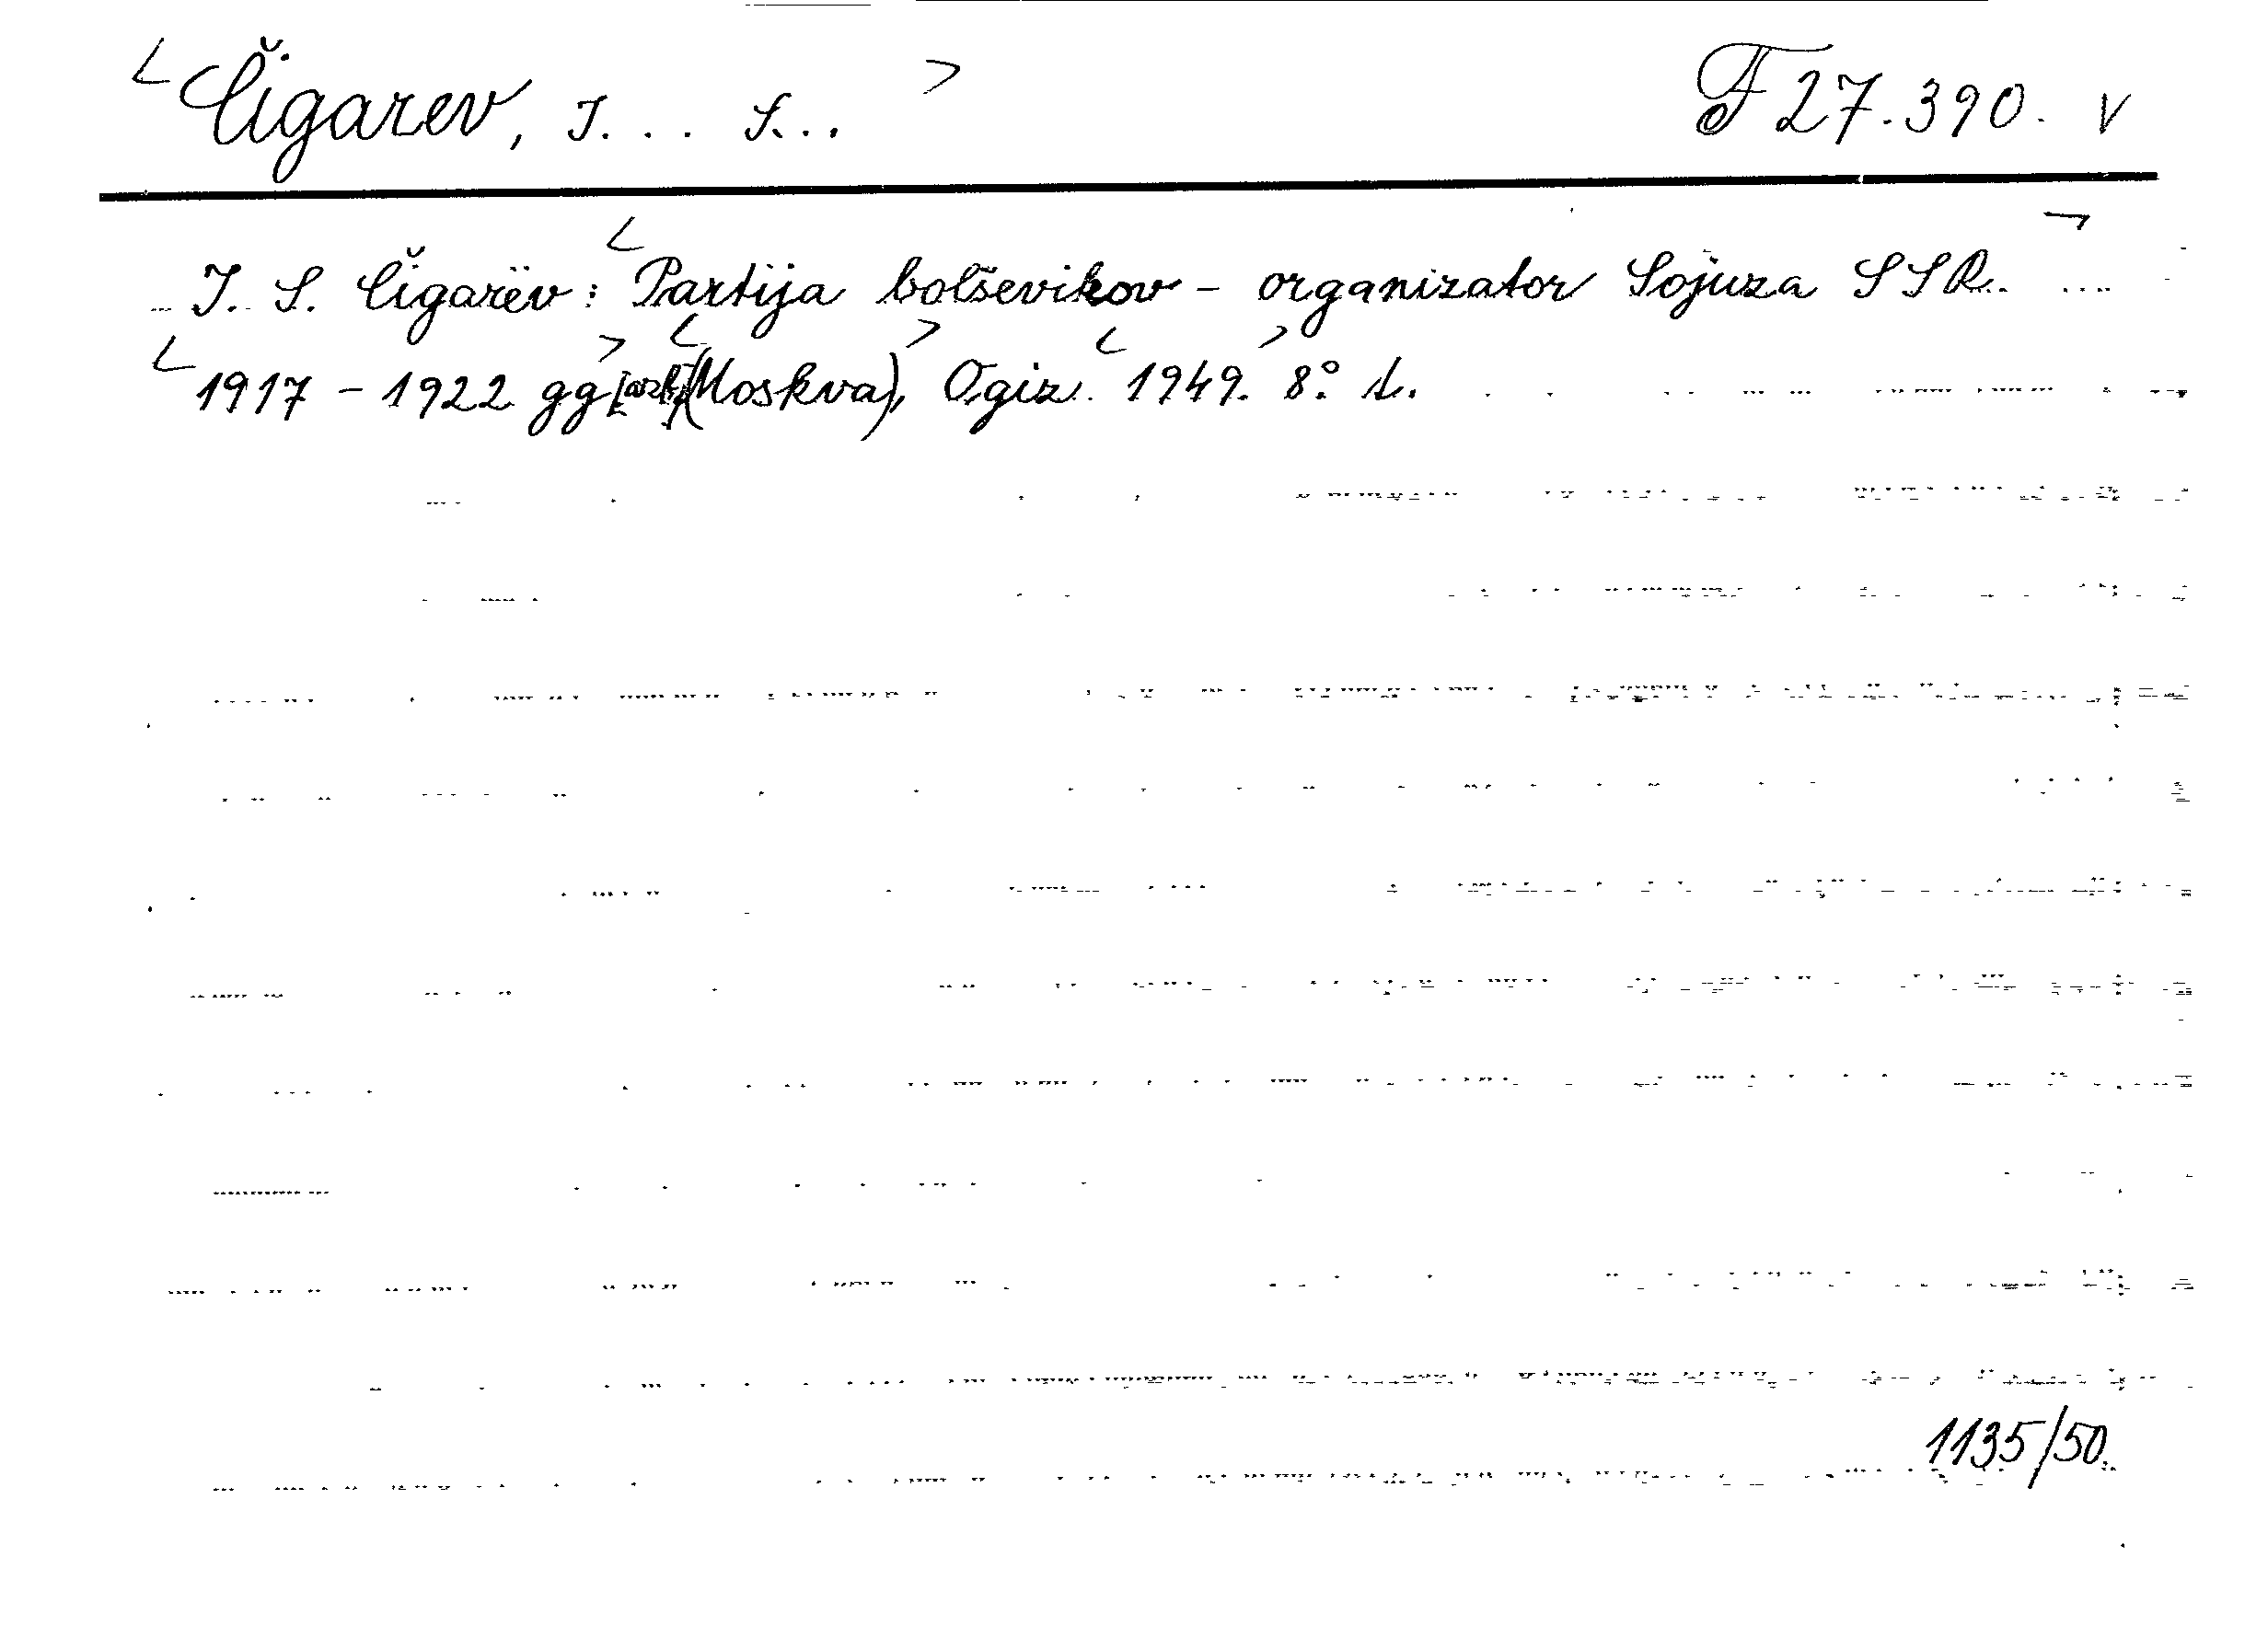 < Čigarev, I. . . S. . . > F 27.390. v
I. S. Čigarëv: < Partija bolševikov - organizator Sojuza SSR. >
< 1917 - 1922 gg. > < (Moskva), > Ogiz. < 1949. > 8° L.
1135/50.